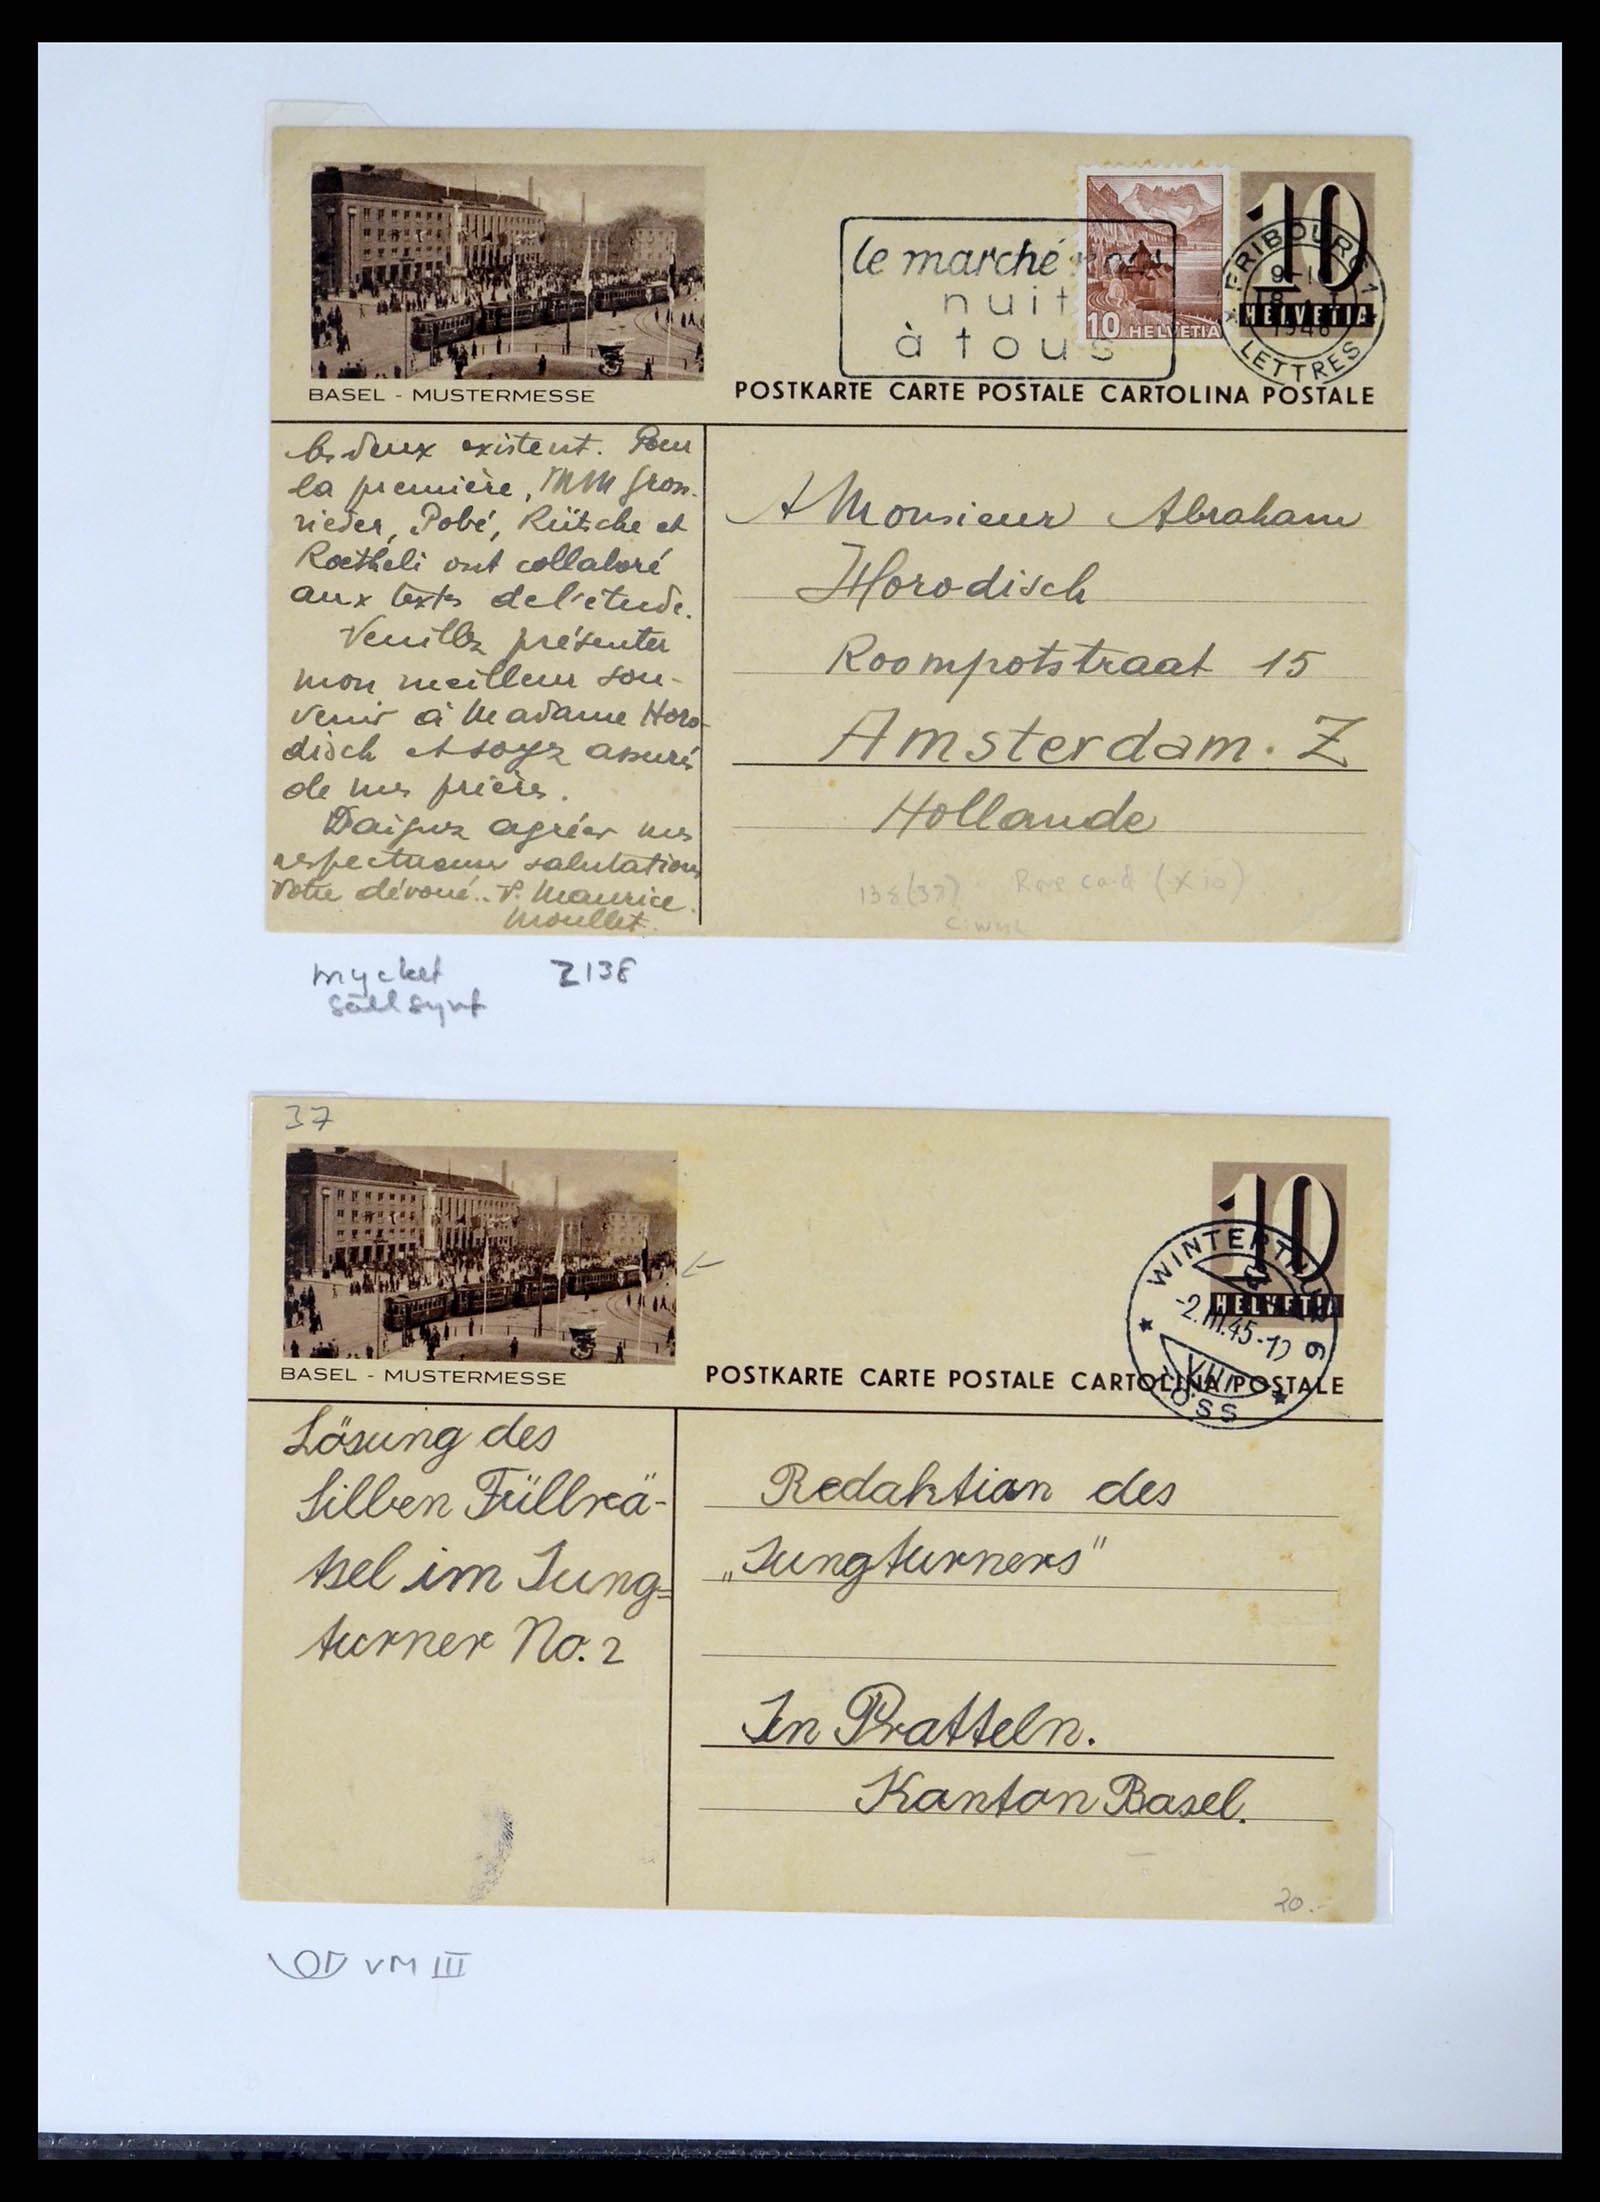 le marché noir
nuit
à tous
10 HELVETIA
10
HELVETIA
FRIBOURG 1
9-10
1946
LETTRES
BASEL - MUSTERMESSE
POSTKARTE CARTE POSTALE CARTOLINA POSTALE
les deux existent. Pour
la première, MM Gros-
rieder, Pobé, Rütsche et
Roetheli ont collaboré
aux textes de l'étude.
Veuillez présenter
mon meilleur sou-
venir à Madame Horo-
disch et soyez assurés
de mes prières.
Daignez agréer mes
respectueuses salutations
Votre dévoué.. P. Maurice
Moullet.
A Monsieur Abraham
Horodisch
Roompotstraat 15
Amsterdam. Z
Hollande
138(37) Rare card (x10)
mycket Z138
sällsynt
37
10
HELVETIA
WINTERTHUR 6
-2.III.45-12
VIII
TÖSS
BASEL - MUSTERMESSE
POSTKARTE CARTE POSTALE CARTOLINA POSTALE
Lösung des
Silben Füllrä-
tsel im Jung=
turner No. 2
Redaktion des
„Jungturners"
In Pratteln.
Kanton Basel.
20.-
VM III